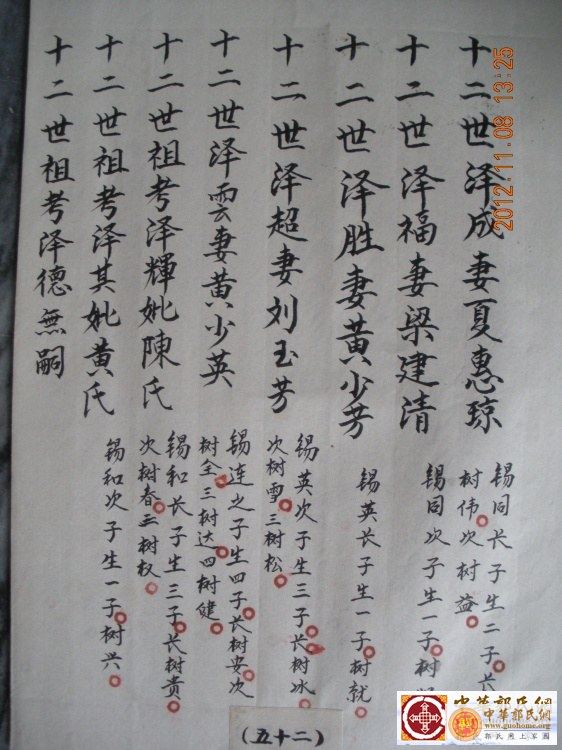 十二世泽成妻夏惠琼
锡同长子生二子长
树伟次树益
十二世泽福妻梁建清
锡同次子生一子树
十二世泽胜妻黄少芳
锡英长子生一子树就
十二世泽超妻刘玉芳
锡英次子生三子长树冰
次树雪三树松
十二世泽雲妻黄少英
锡连之子生四子长树安次
树全三树达四树健
十二世祖考泽輝妣陳氏
锡和长子生三子长树贵
次树春三树权
十二世祖考泽其妣黄氏
锡和次子生一子树兴
十二世祖考泽德無嗣
(五十二)
2012.11.08 13:25
中华郭氏网
中華郭氏網
www.guohome.org
郭氏网上家园